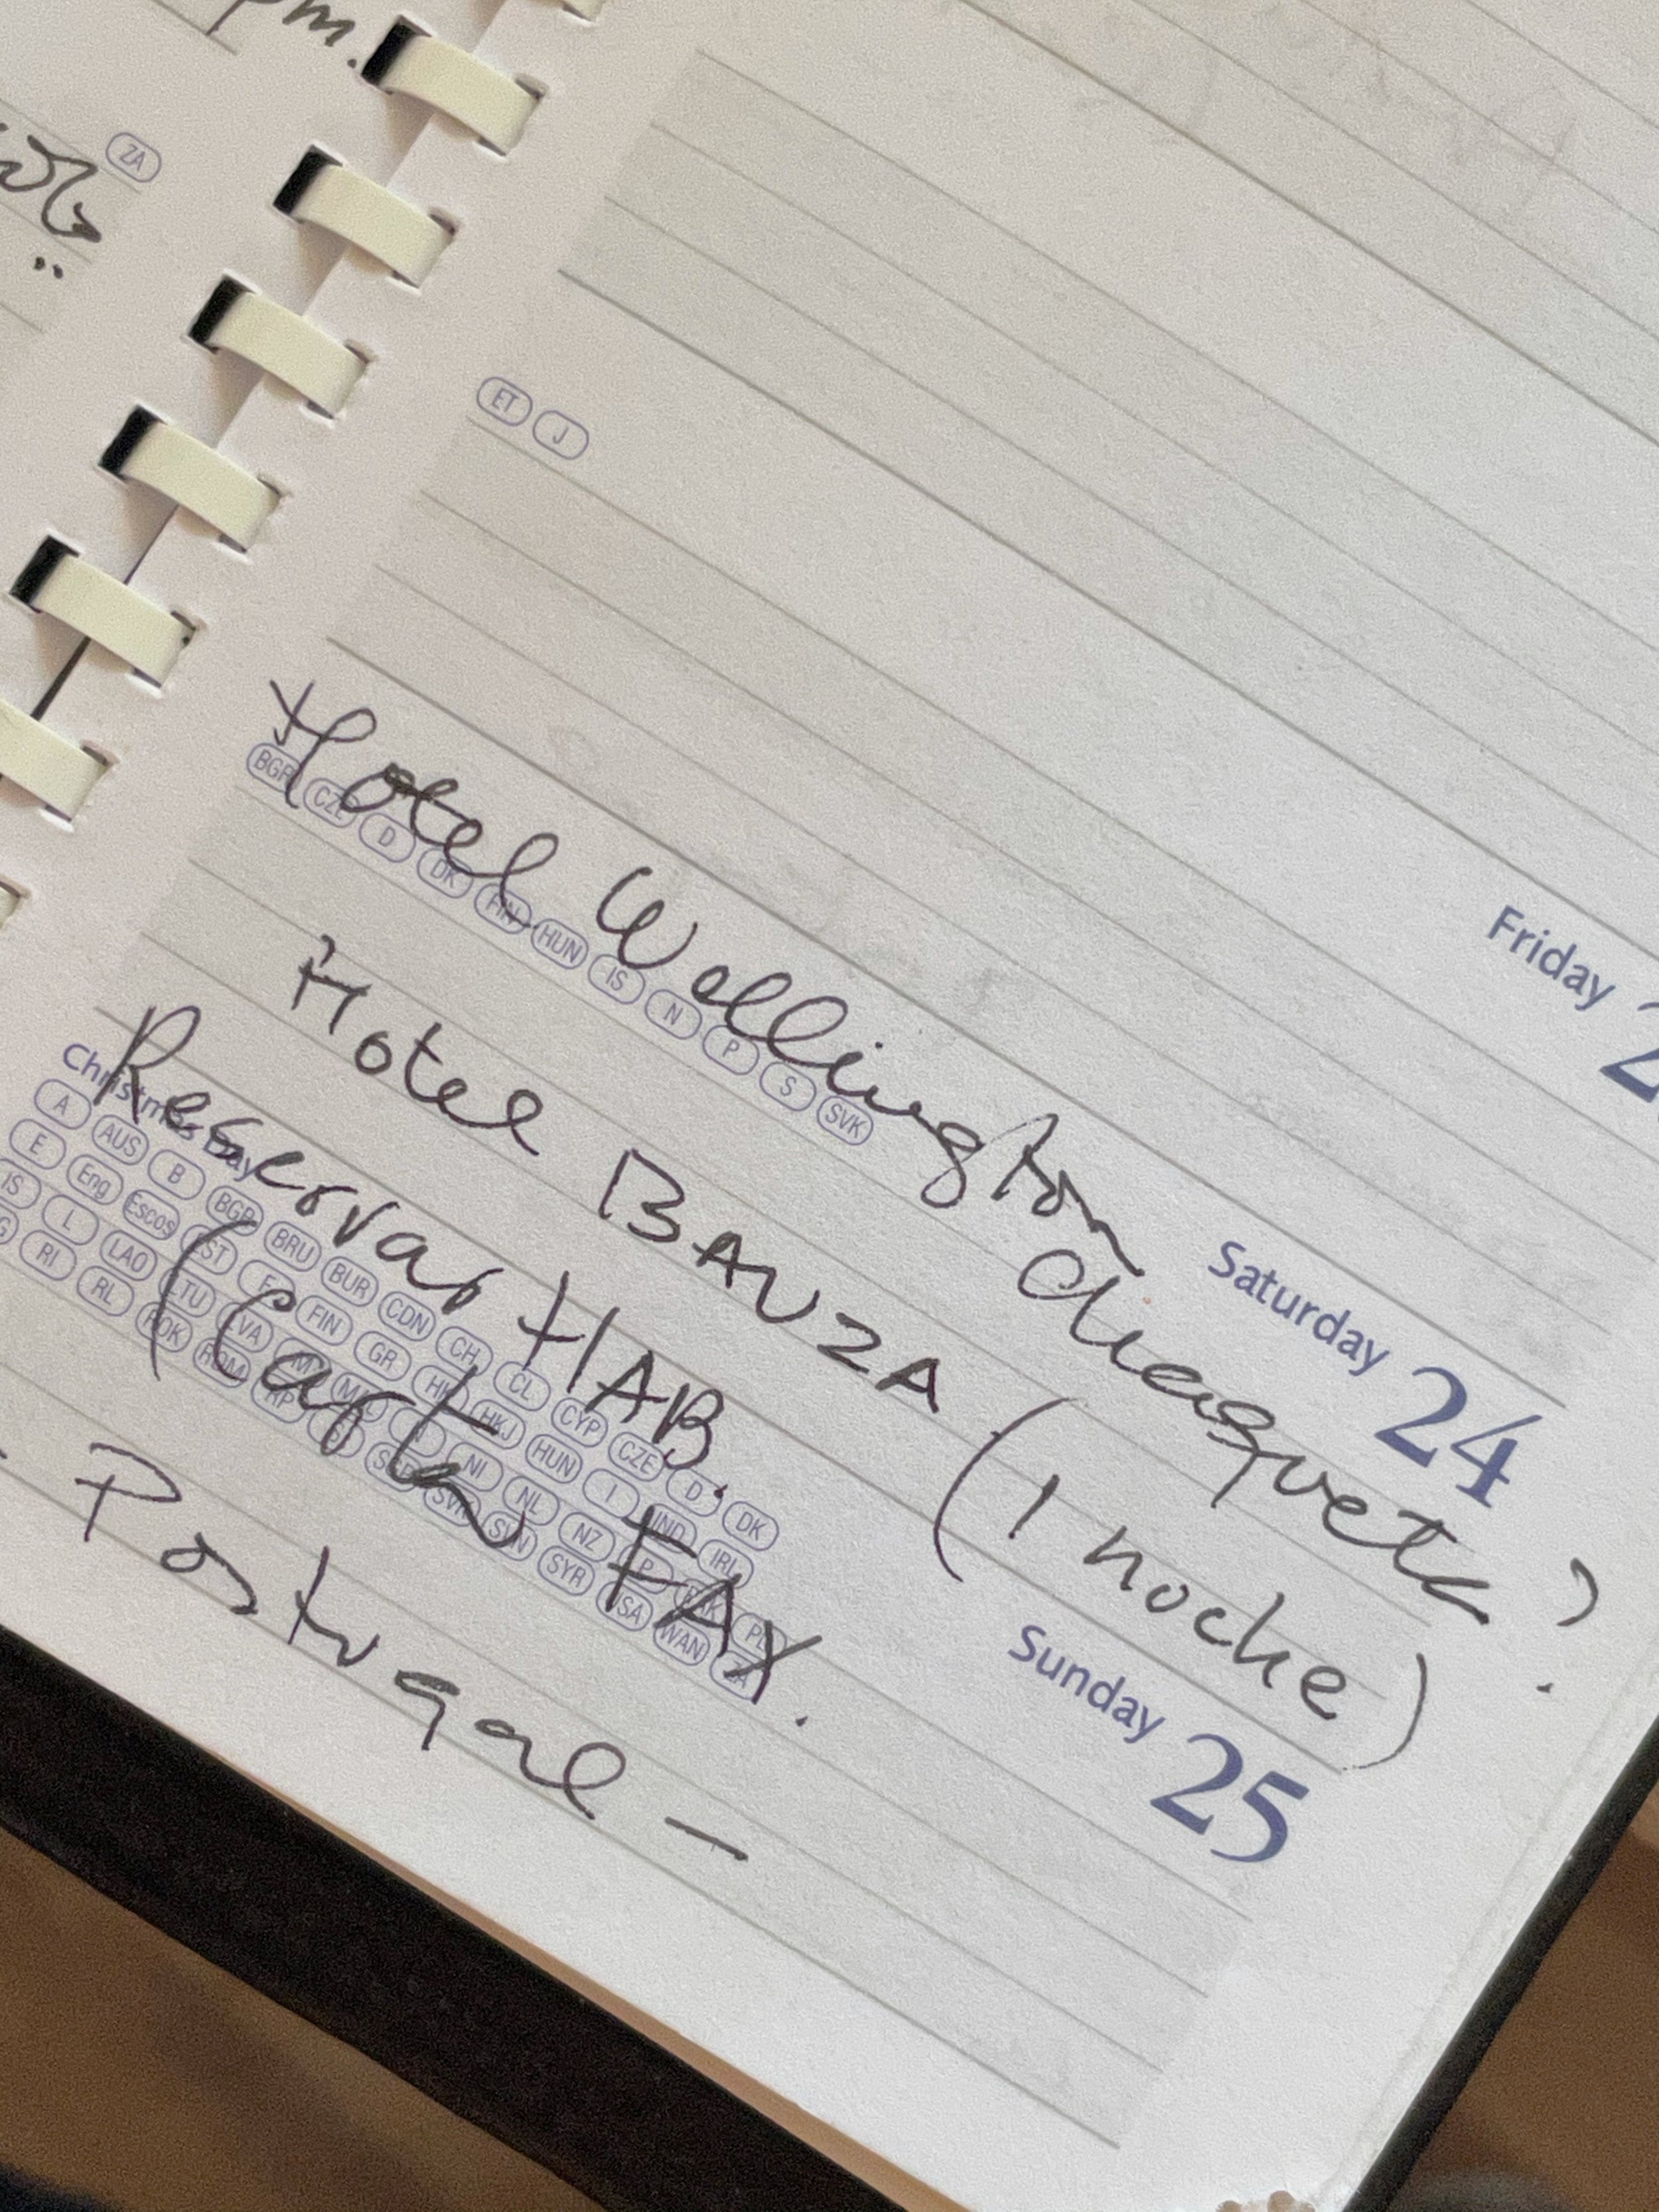 pm.
ZA
ET J
Friday
Hotel Wellington chequete?
BGR CZE D DK FIN HUN IS N P S SVK
Saturday 24
Hotel BAUZA (1 noche)
Reservar HAB.
Christmas Day
A AUS B BGR BRU BUR CDN CH CL CYP CZE D DK
E Eng Escos EST F FIN GR HK HKJ HUN I IND IRL
IS L LAO LTU LVA NI NL NZ P PL
RI RL ROK SYR USA WAN ZA
Sunday 25
(Carta FAX.
Postugal —